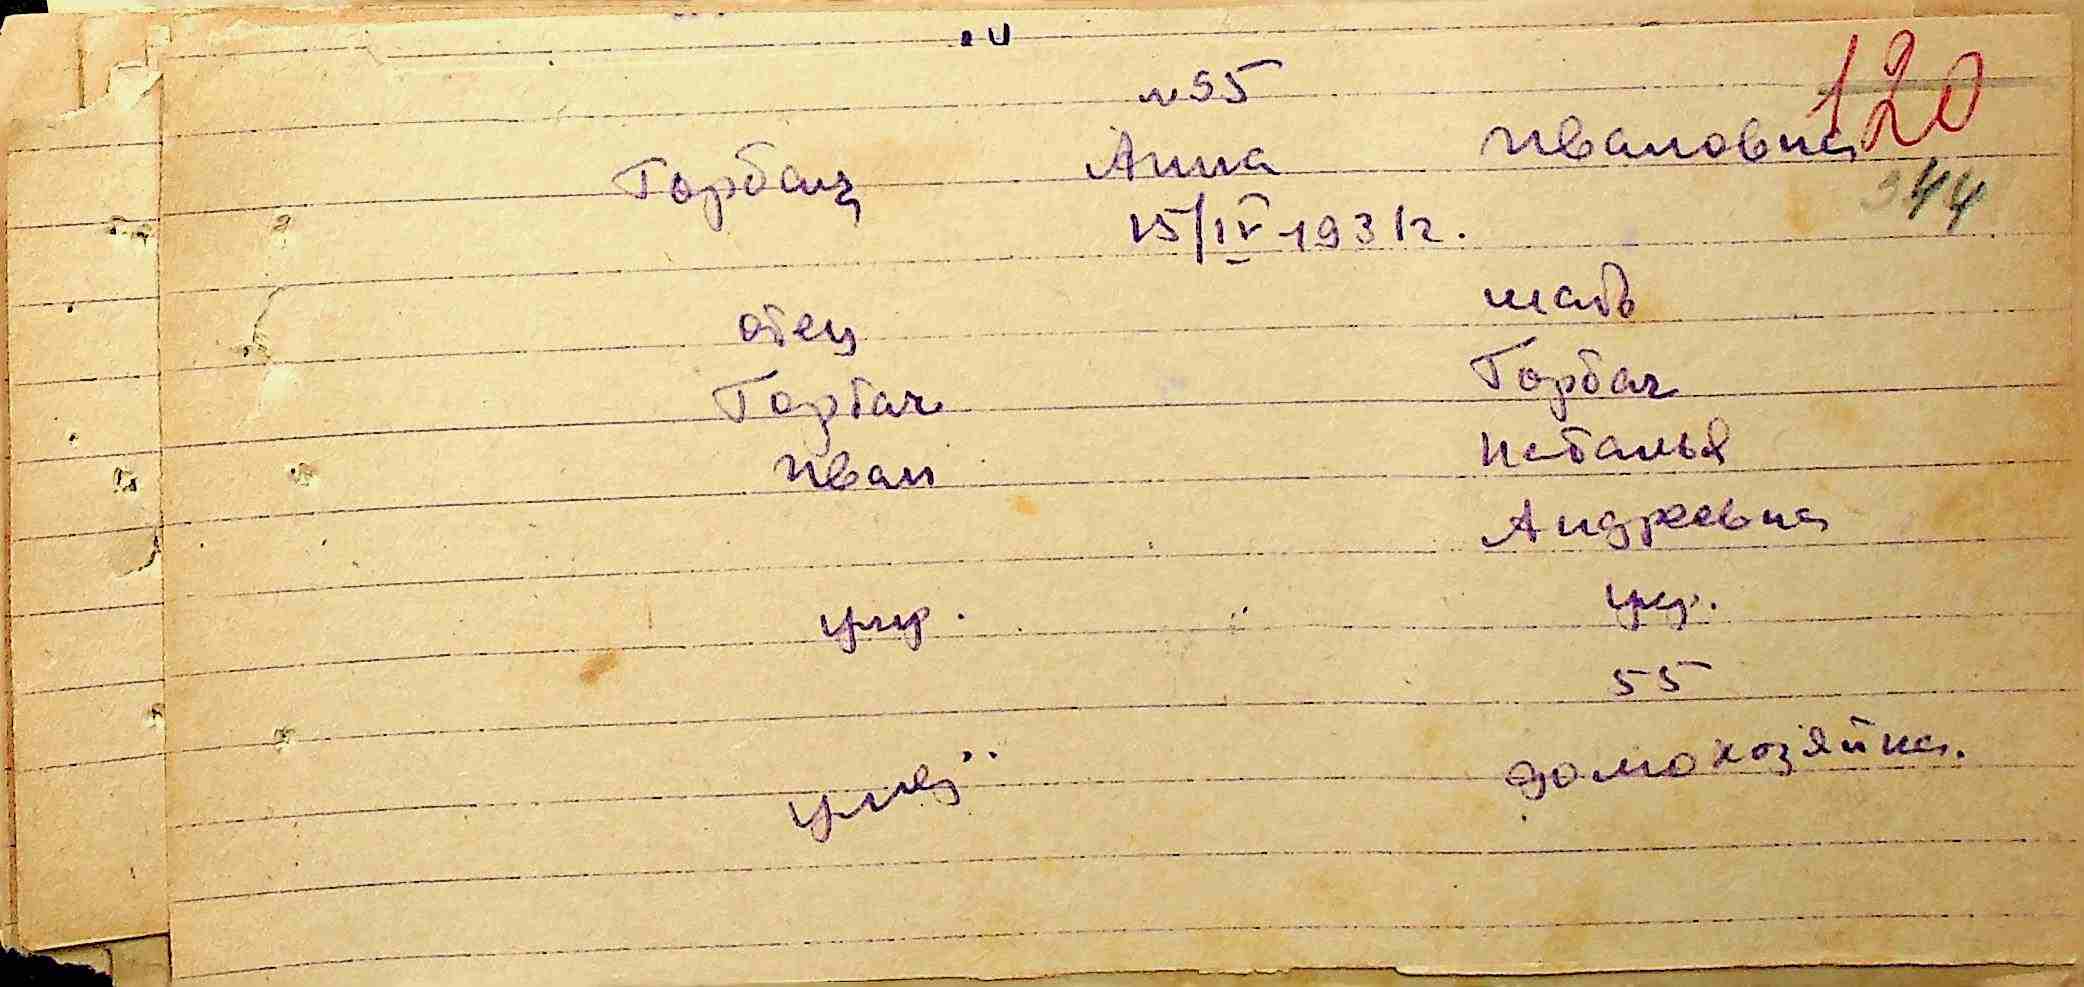 120
№95
Горбач Анна Ивановна
344
15/IV-1931г.
отец мать
Горбач Горбач
Иван Наталья
Андреевна
укр. укр.
55
домохозяйка.